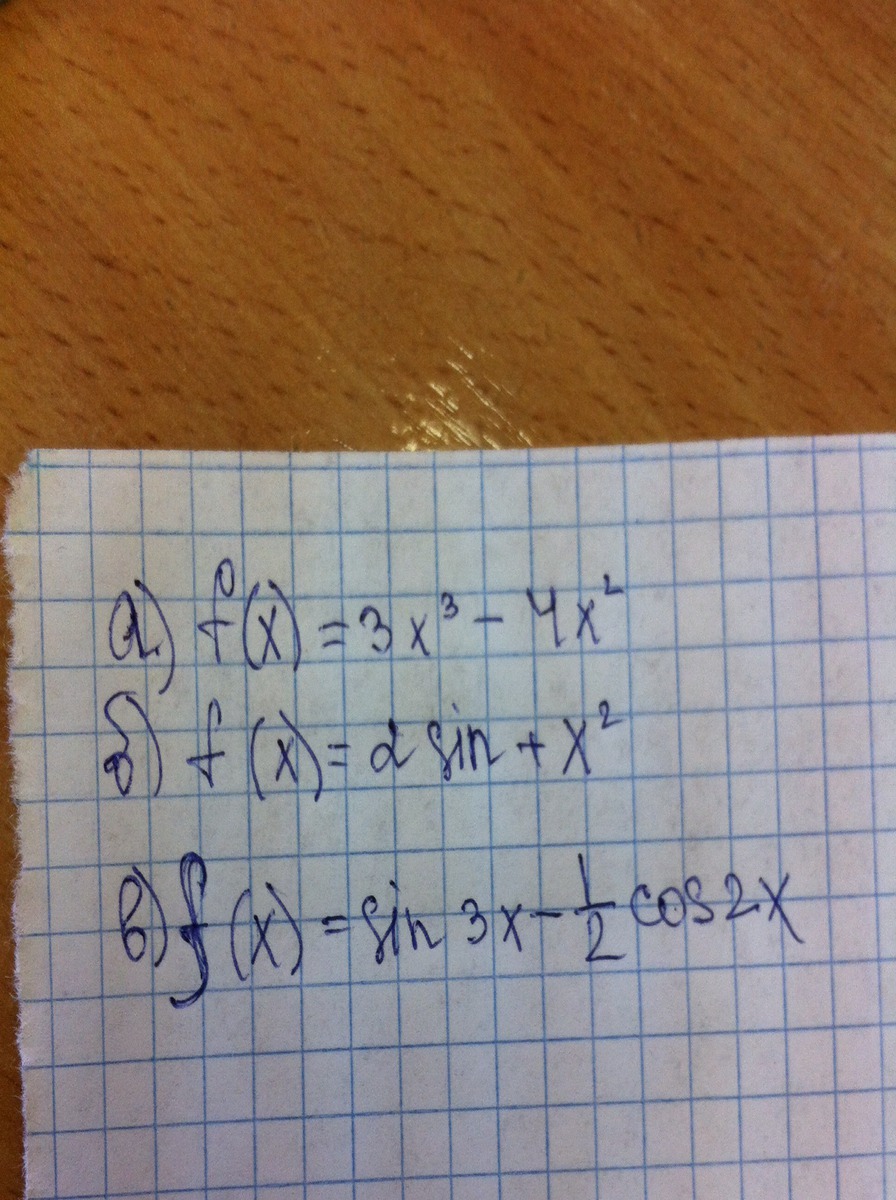 а) f(x) = 3x³ - 4x²
б) f(x) = 2 sin + x²
в) f(x) = sin 3x - 1/2 cos 2x